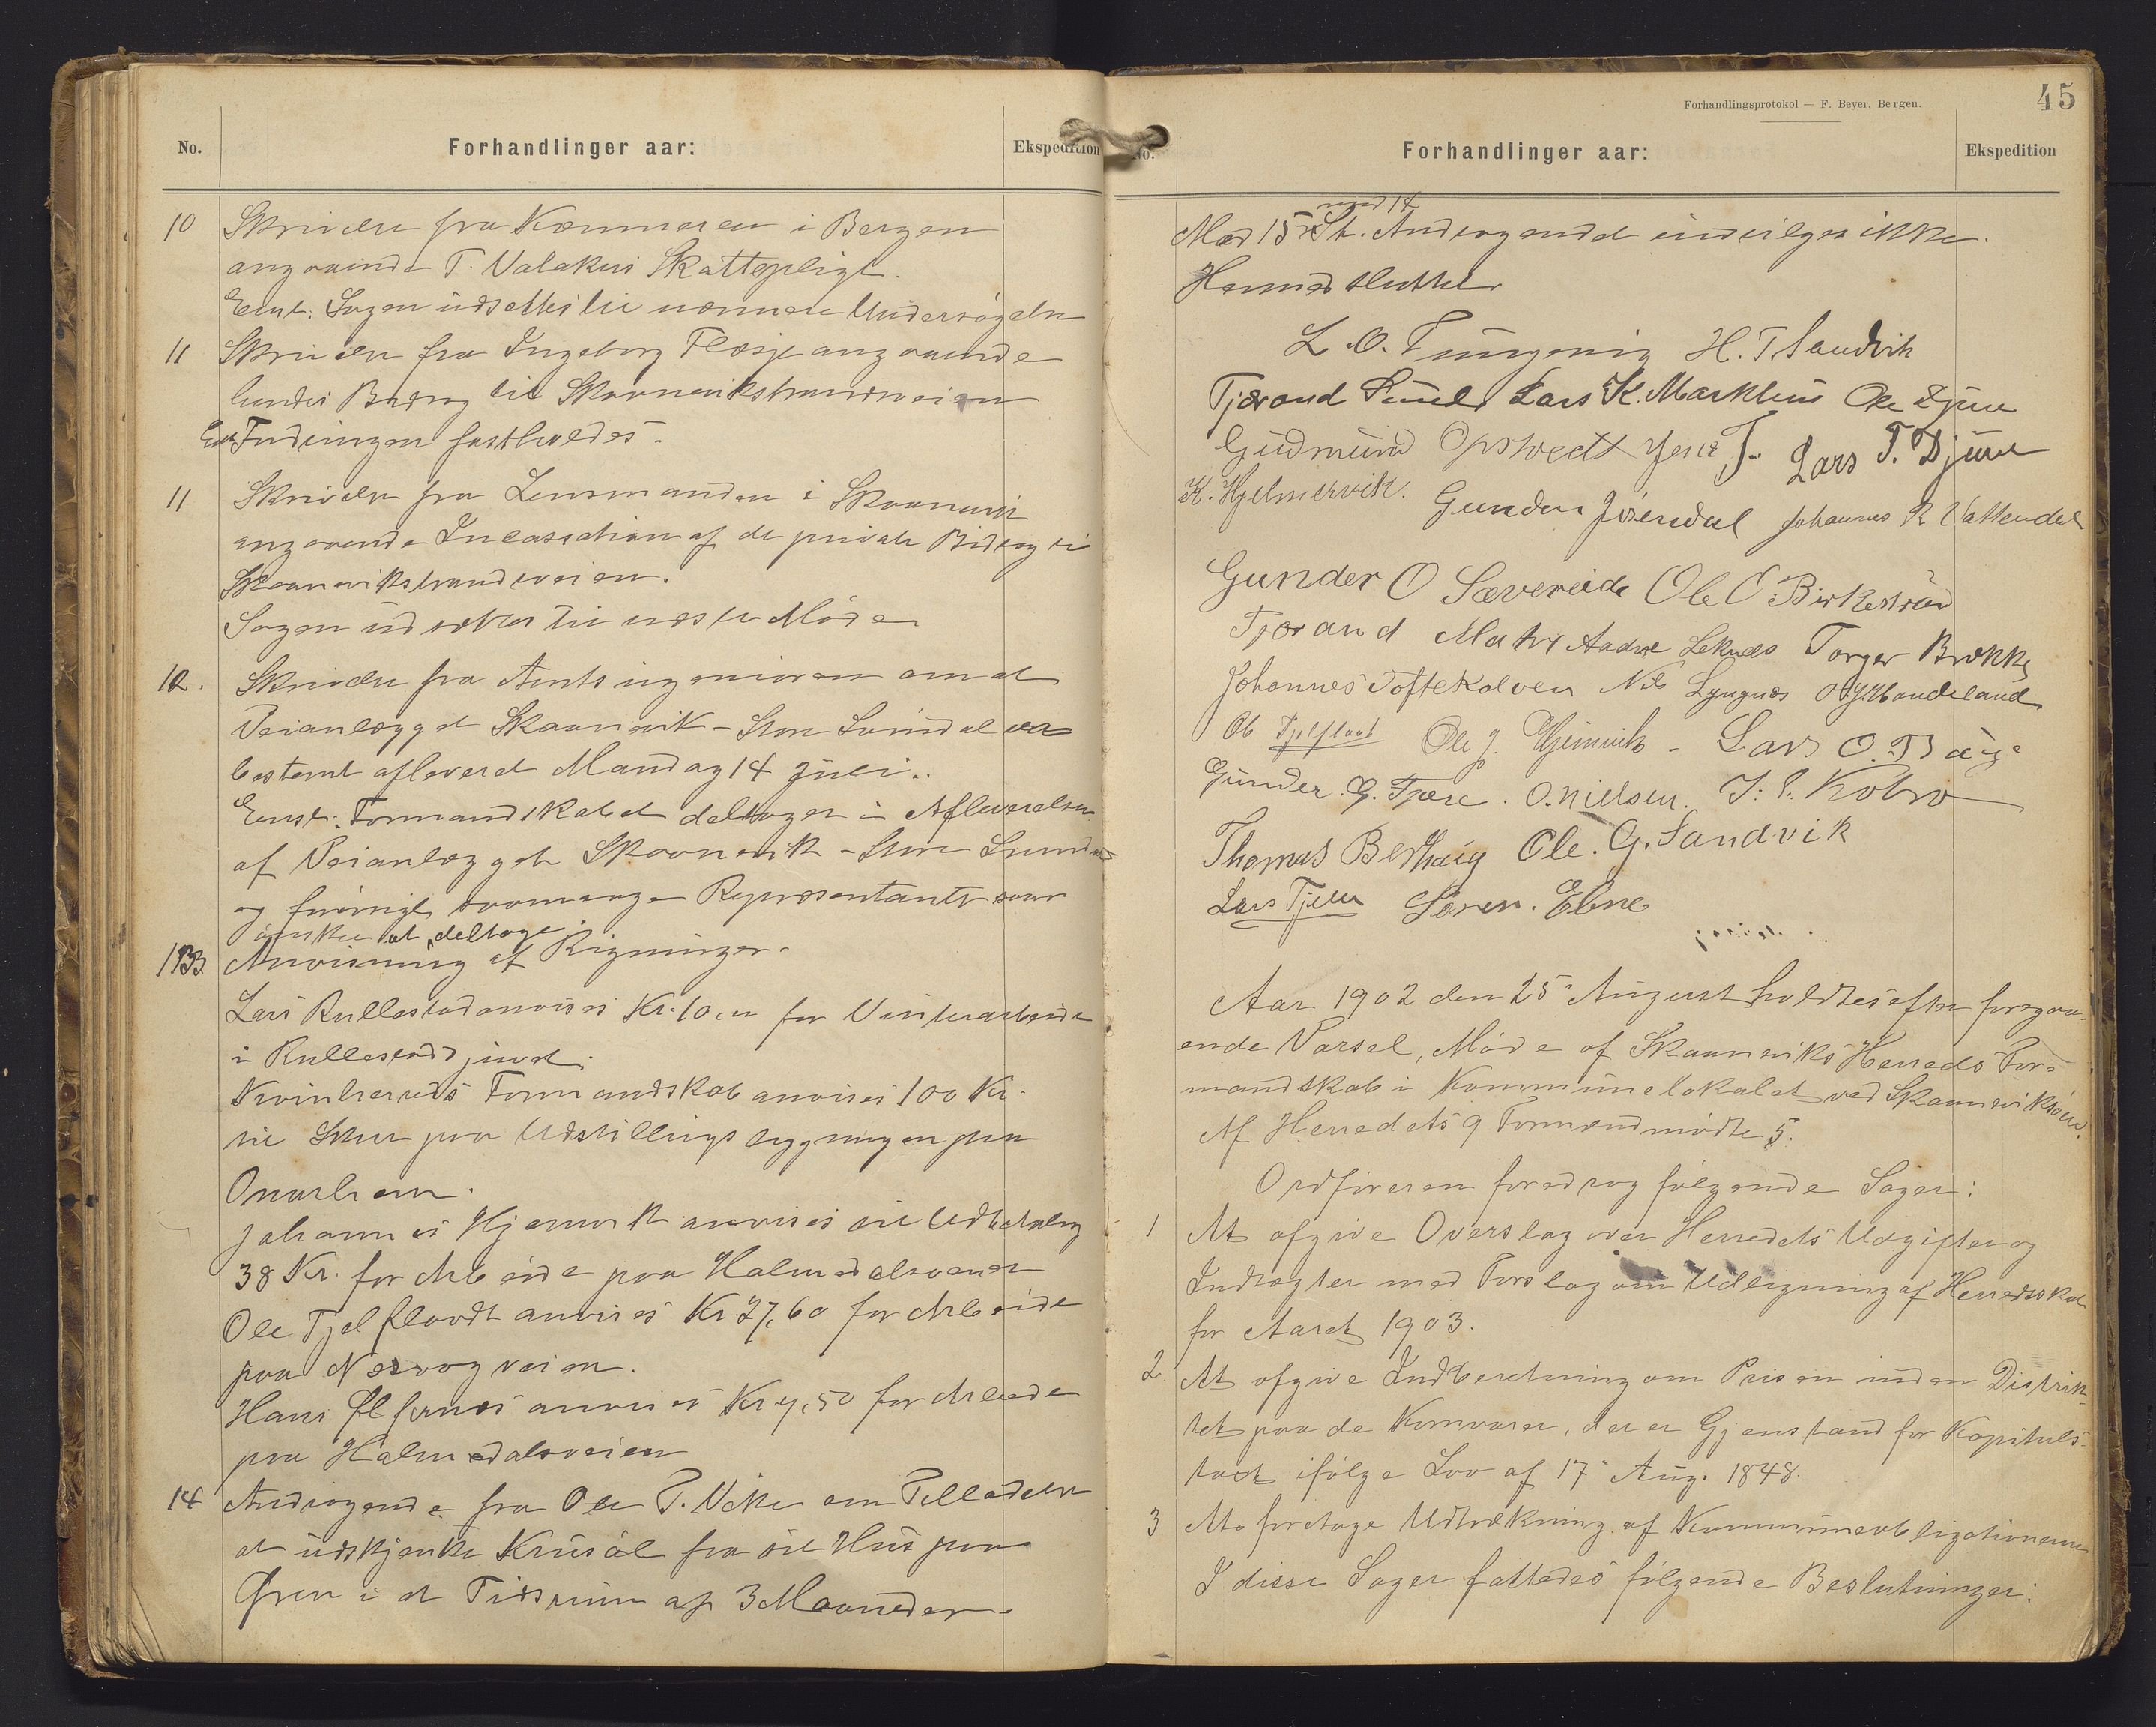 No.
Forhandlinger aar:
Ekspedition
10 Skrivelse fra Kæmneren i Bergen
angaaende T. Valakers Skattepligt.
Enst. Sagen udsættes til nærmere Undersøgelse
11 Skrivelse fra Ingeborg Flæsje angaaende
hendes Bidrag til Skaanevikstrandveien
Indringen fastholdes.
11 Skrivelse fra Lensmanden i Skaanevik
angaaende Incassation af de private Bidrag til
Skaanevikstrandveien.
Sagen udsættes til næste Møde
12. Skrivelse fra Amtsingeniøren om at
Veianlægget Skaanevik - Store Sundal er
bestemt afleveret Mandag 14 Juli.
Enst: Formandskabet deltager i Afleverelsen
af Veianlægget Skaanevik - Store Sundal
og forøvrigt saamange Repræsentanter som
ønsker at deltage
13 Anvisning af Rigninger.
Lars Rullestad anvises Kr. 10,00 for Vinterarbeide
i Rullestadjuvet.
Kvinherreds Formandskab anvises 100 Kr.
til Skur paa Udstillingsbygningen paa
Onarheim.
Johannes Hjemvik anvises til Udbetaling
38 Kr. for Arbeide paa Halmedalsveien
Ole Tjelflaadt anvises Kr 27,60 for Arbeide
paa Nesvogveien.
Hans anvises Kr 4,50 for Arbeide
paa Halmedalsveien
14 Andragende fra Ole P. om Tilladelse
at udskjenke Krusøl fra sit Hus paa
i et Tidsrum af 3 Maaneder.
Forhandlingsprotokol — F. Beyer, Bergen.
45
No.
Forhandlinger aar:
Ekspedition
Med 15 mod 14 St. Andragendet indvilges ikke.
Hermed sluttet
L. O. H. T. Sandvik
Tjærand Lars K. Markhus Ole
Gudmund Opstvedt Jens T. Lars T. Djuve
K. Hjelmervik. Gunder Johannes R Vattendal
Gunder O Sævereide Ole O Birkestrand
Tjærand Matre Aadne Leknes Torger Brekke
Johannes Toftekalven Nils Lyngnes Haudeland
Ole Tjelflaat Ole J. Hjemvik - Lars O.
Gunder. G. Fjære. O. Nielsen. Kobro
Thomas Berhaug Ole. G. Sandvik
Lars Søren. Ebne
Aar 1902 den 25 August holdtes efter foregaa-
ende Varsel, Møde af Skaaneviks Herreds For-
mandskab i Kommunelokalet ved Skaaneviksøen.
Af Herredets 9 Formænd mødte 5.
Ordføreren foredrog følgende Sager:
1 At afgive Overslag over Herredets Udgifter og
Indtægter med Forslag om Udligning af Herredsskat
for Aaret 1903.
2 At afgive Indberetning om Prisen inden Distrik-
tet paa de Kornvarer, der er Gjenstand for Kapituls-
taxt ifølge Lov af 17 Aug. 1848.
3 At foretage Udtrækning af Kommuneobligationerne
I disse Sager fattedes følgende Beslutninger: